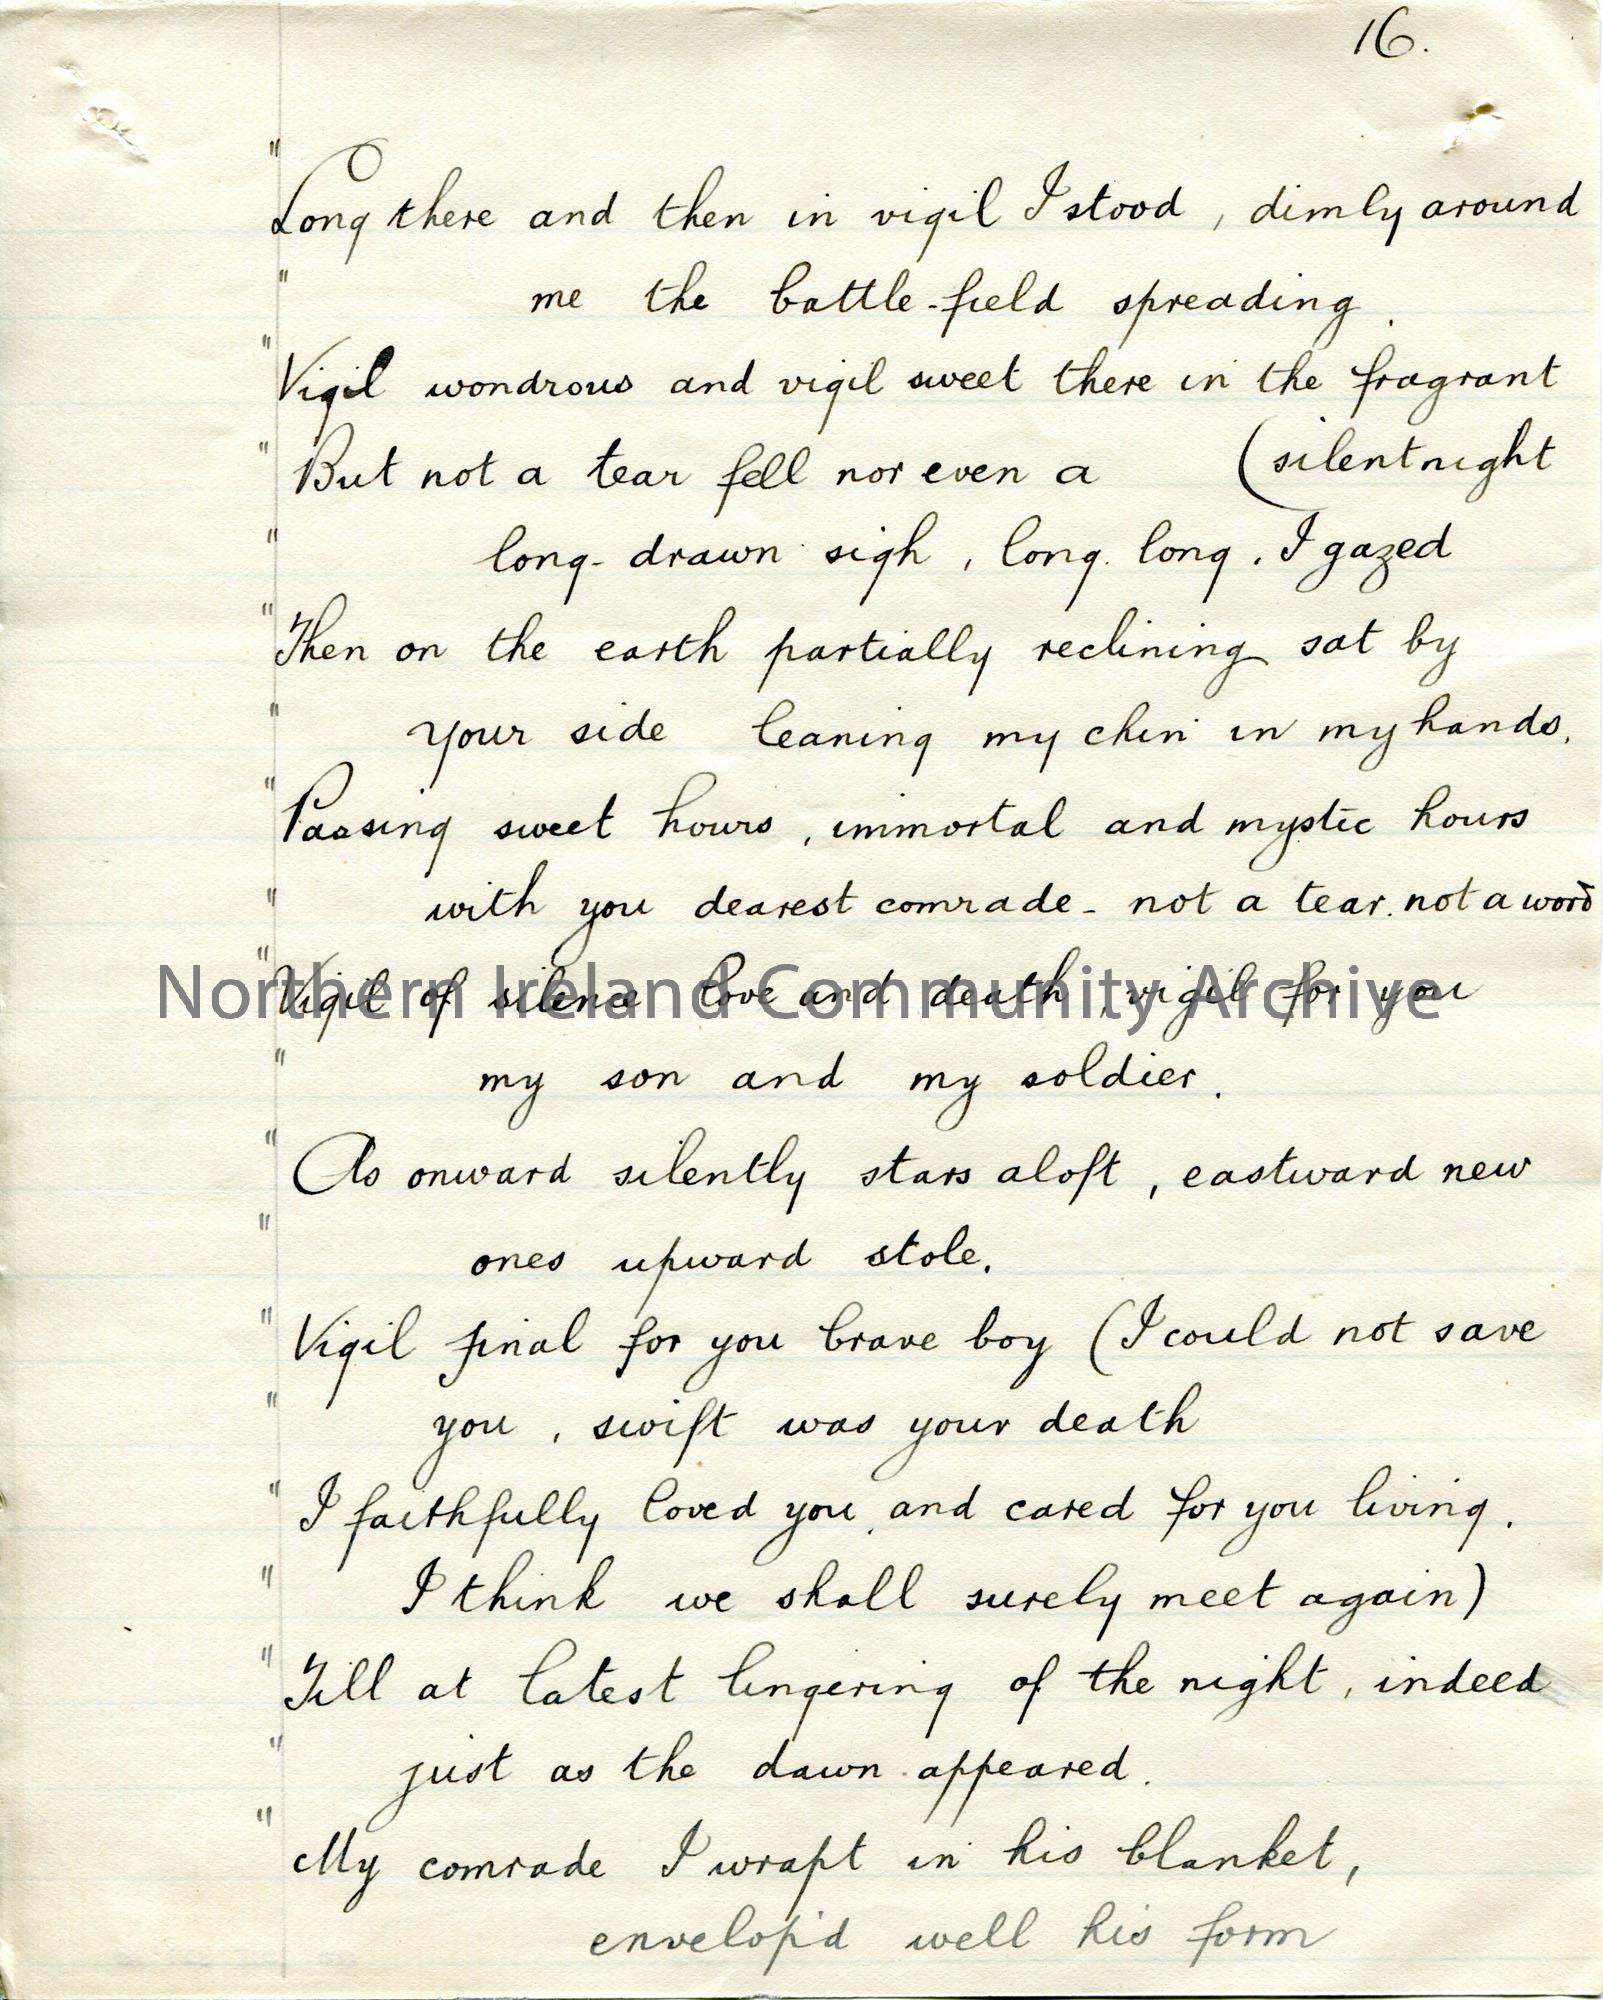 16.
" Long there and then in vigil I stood, dimly around
" me the battle-field spreading.
" Vigil wondrous and vigil sweet there in the fragrant
(silent night
" But not a tear fell nor even a
" long-drawn sigh, long. long. I gazed
" Then on the earth partially reclining sat by
" your side leaning my chin in my hands.
" Passing sweet hours, immortal and mystic hours
" with you dearest comrade - not a tear. not a word
" Vigil of silence love and death, vigil for you
Northern Ireland Community Archive
" my son and my soldier.
" As onward silently stars aloft, eastward new
" ones upward stole.
" Vigil final for you brave boy (I could not save
" you, swift was your death
" I faithfully loved you, and cared for you living.
" I think we shall surely meet again)
" Till at latest lingering of the night, indeed
" just as the dawn appeared.
" My comrade I wrapt in his blanket,
envelop'd well his form